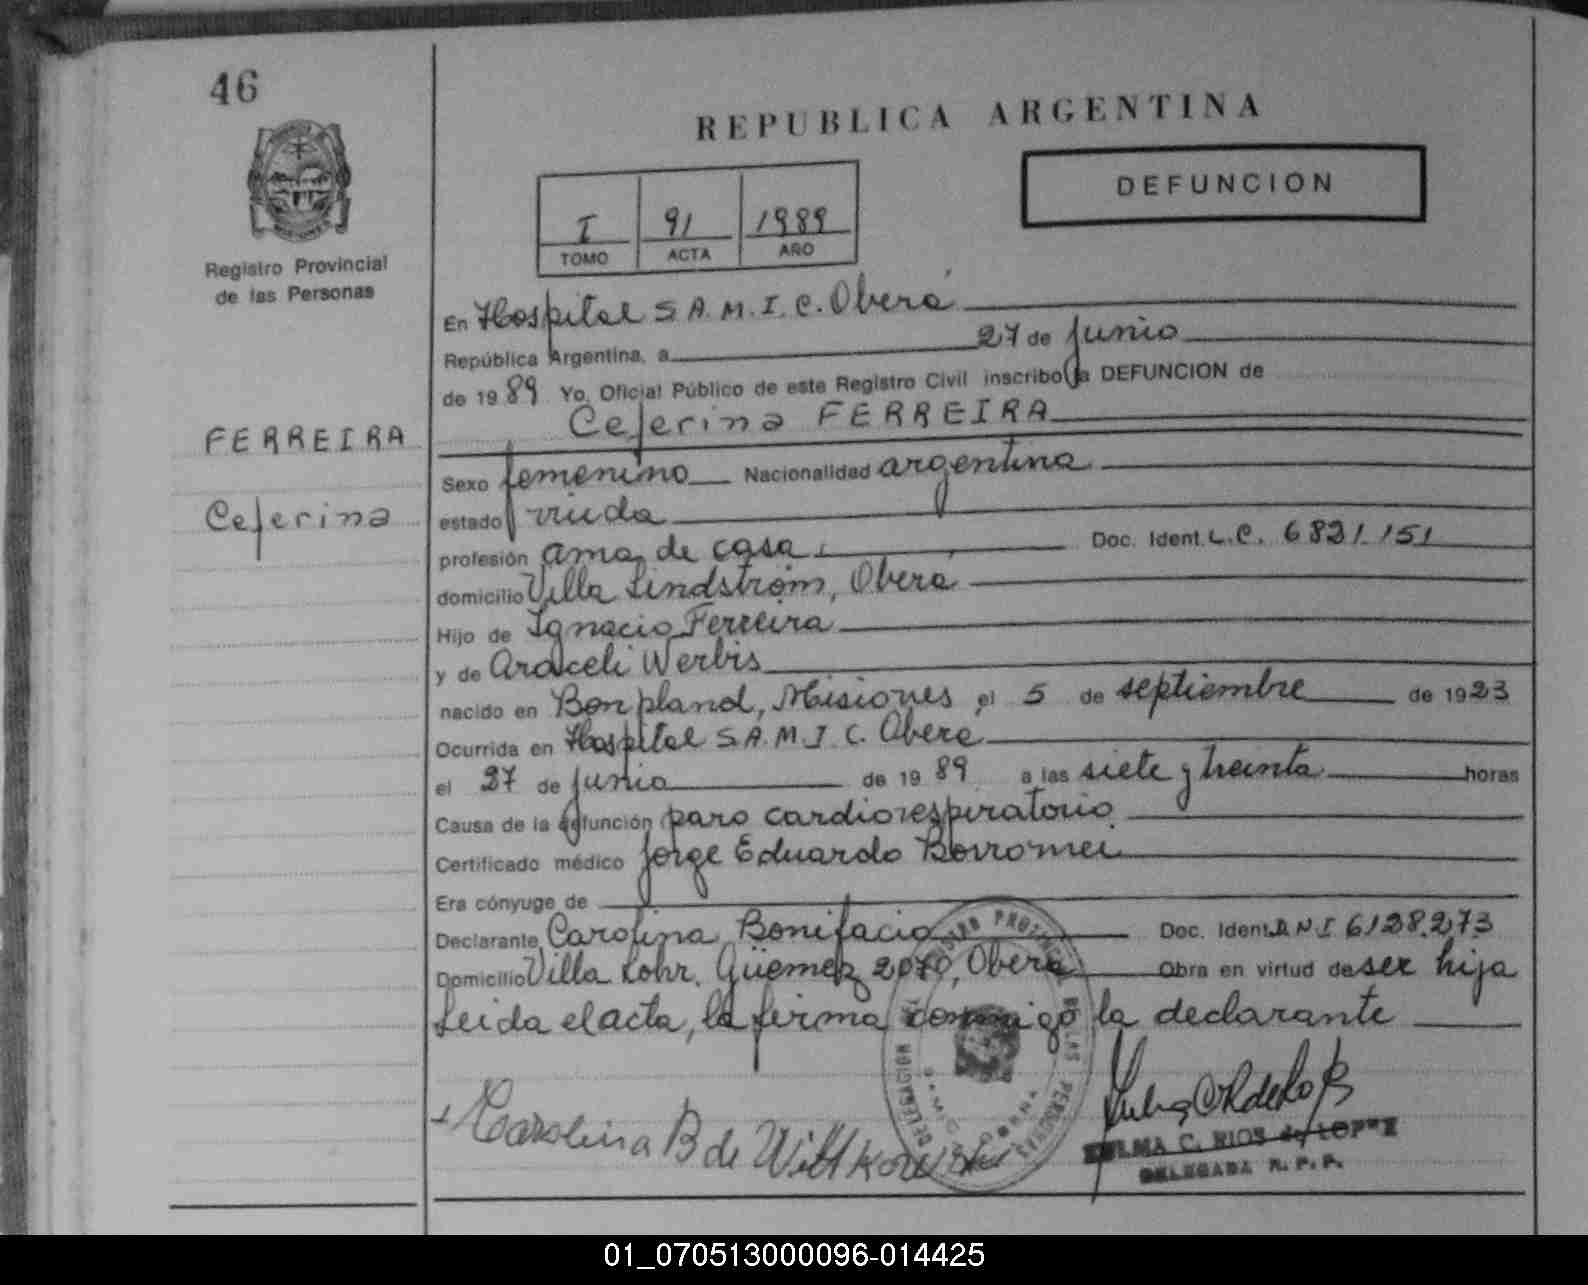 46
REPUBLICA ARGENTINA
DEFUNCION
I 91 1989
TOMO ACTA AÑO
Registro Provincial
de las Personas
En Hospital S.A.M.I.C. Oberá
República Argentina, a 27 de junio
de 1989 Yo, Oficial Público de este Registro Civil inscribo la DEFUNCION de
Ceferina FERREIRA
FERREIRA
Ceferina
Sexo femenino Nacionalidad argentina
estado viuda
profesión ama de casa Doc. Ident. L.C. 6821.151
domicilio Villa Lindstrom, Oberá
Hijo de Ignacio Ferreira
y de Araceli Werbis
nacido en Bonpland, Misiones el 5 de septiembre de 1923
Ocurrida en Hospital S.A.M.I.C. Oberá
el 27 de junio de 1989 a las siete y treinta horas
Causa de la defunción paro cardiorespiratorio
Certificado médico Jorge Eduardo Borromei
Era cónyuge de
Declarante Carolina Bonifacio Doc. Ident. DNI 6128.273
Domicilio Villa Kohr, Güemez 2070, Oberá Obra en virtud de ser hija
Leida el acta, la firma conmigo la declarante
Carolina B de Wittkowski
C. RIOS de LOPEZ
DELEGADA R. P. P.
REGISTRO PROVINCIAL DE LAS PERSONAS
DELEGACION
01_070513000096-014425